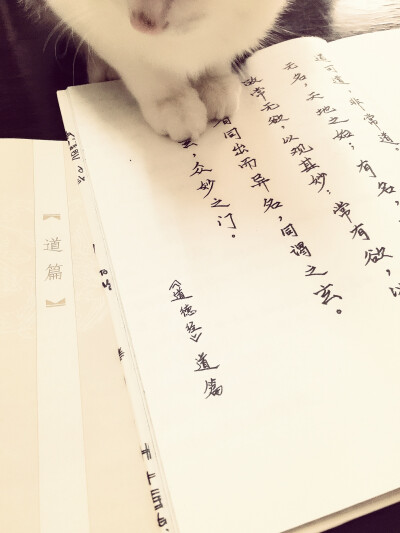 道可道，非常道，
无名，天地之始；有名，
故常无欲，以观其妙，常有欲，以
同出而异名，同谓之玄。
玄，众妙之门。
《道德经》道篇
【道篇】